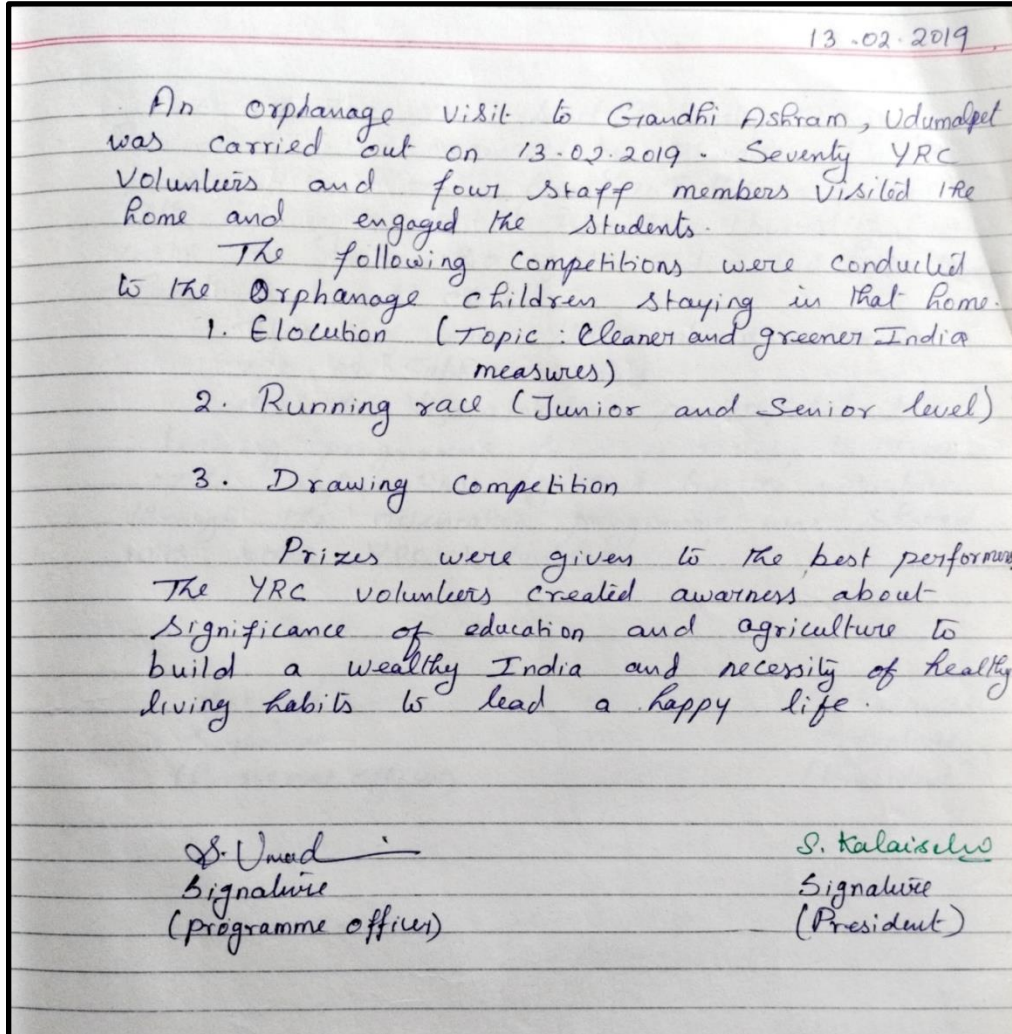 13.02.2019
An Orphanage visit to Gandhi Ashram, Udumalpet
was carried out on 13.02.2019. Seventy YRC
Volunteers and four staff members visited the
home and engaged the students.
The following competitions were conducted
to the Orphanage children staying in that home.
1. Elocution (Topic : Cleaner and greener India
measures)
2. Running race (Junior and Senior level)
3. Drawing Competition
Prizes were given to the best performers
The YRC volunteers created awarness about
significance of education and agriculture to
build a wealthy India and necessity of healthy
living habits to lead a happy life.
S. Kalaiselvi
Signature
(programme officer)
Signature
(President)